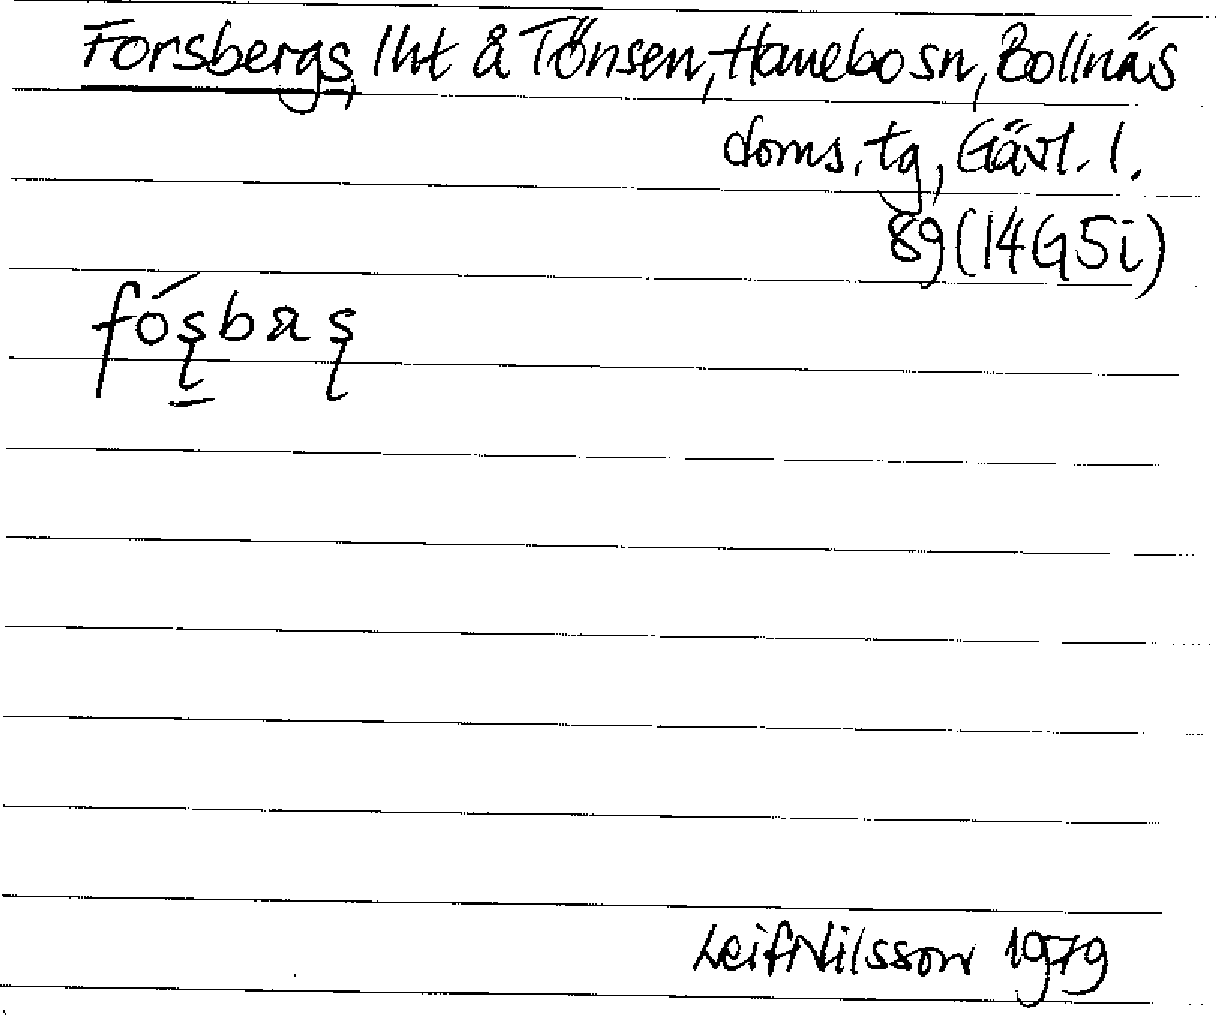 Forsbergs, lht å Tönsen, Hanebo sn, Bollnäs
doms. tg, Gävl. l.
89 (14G5i)
Leif Nilsson 1979